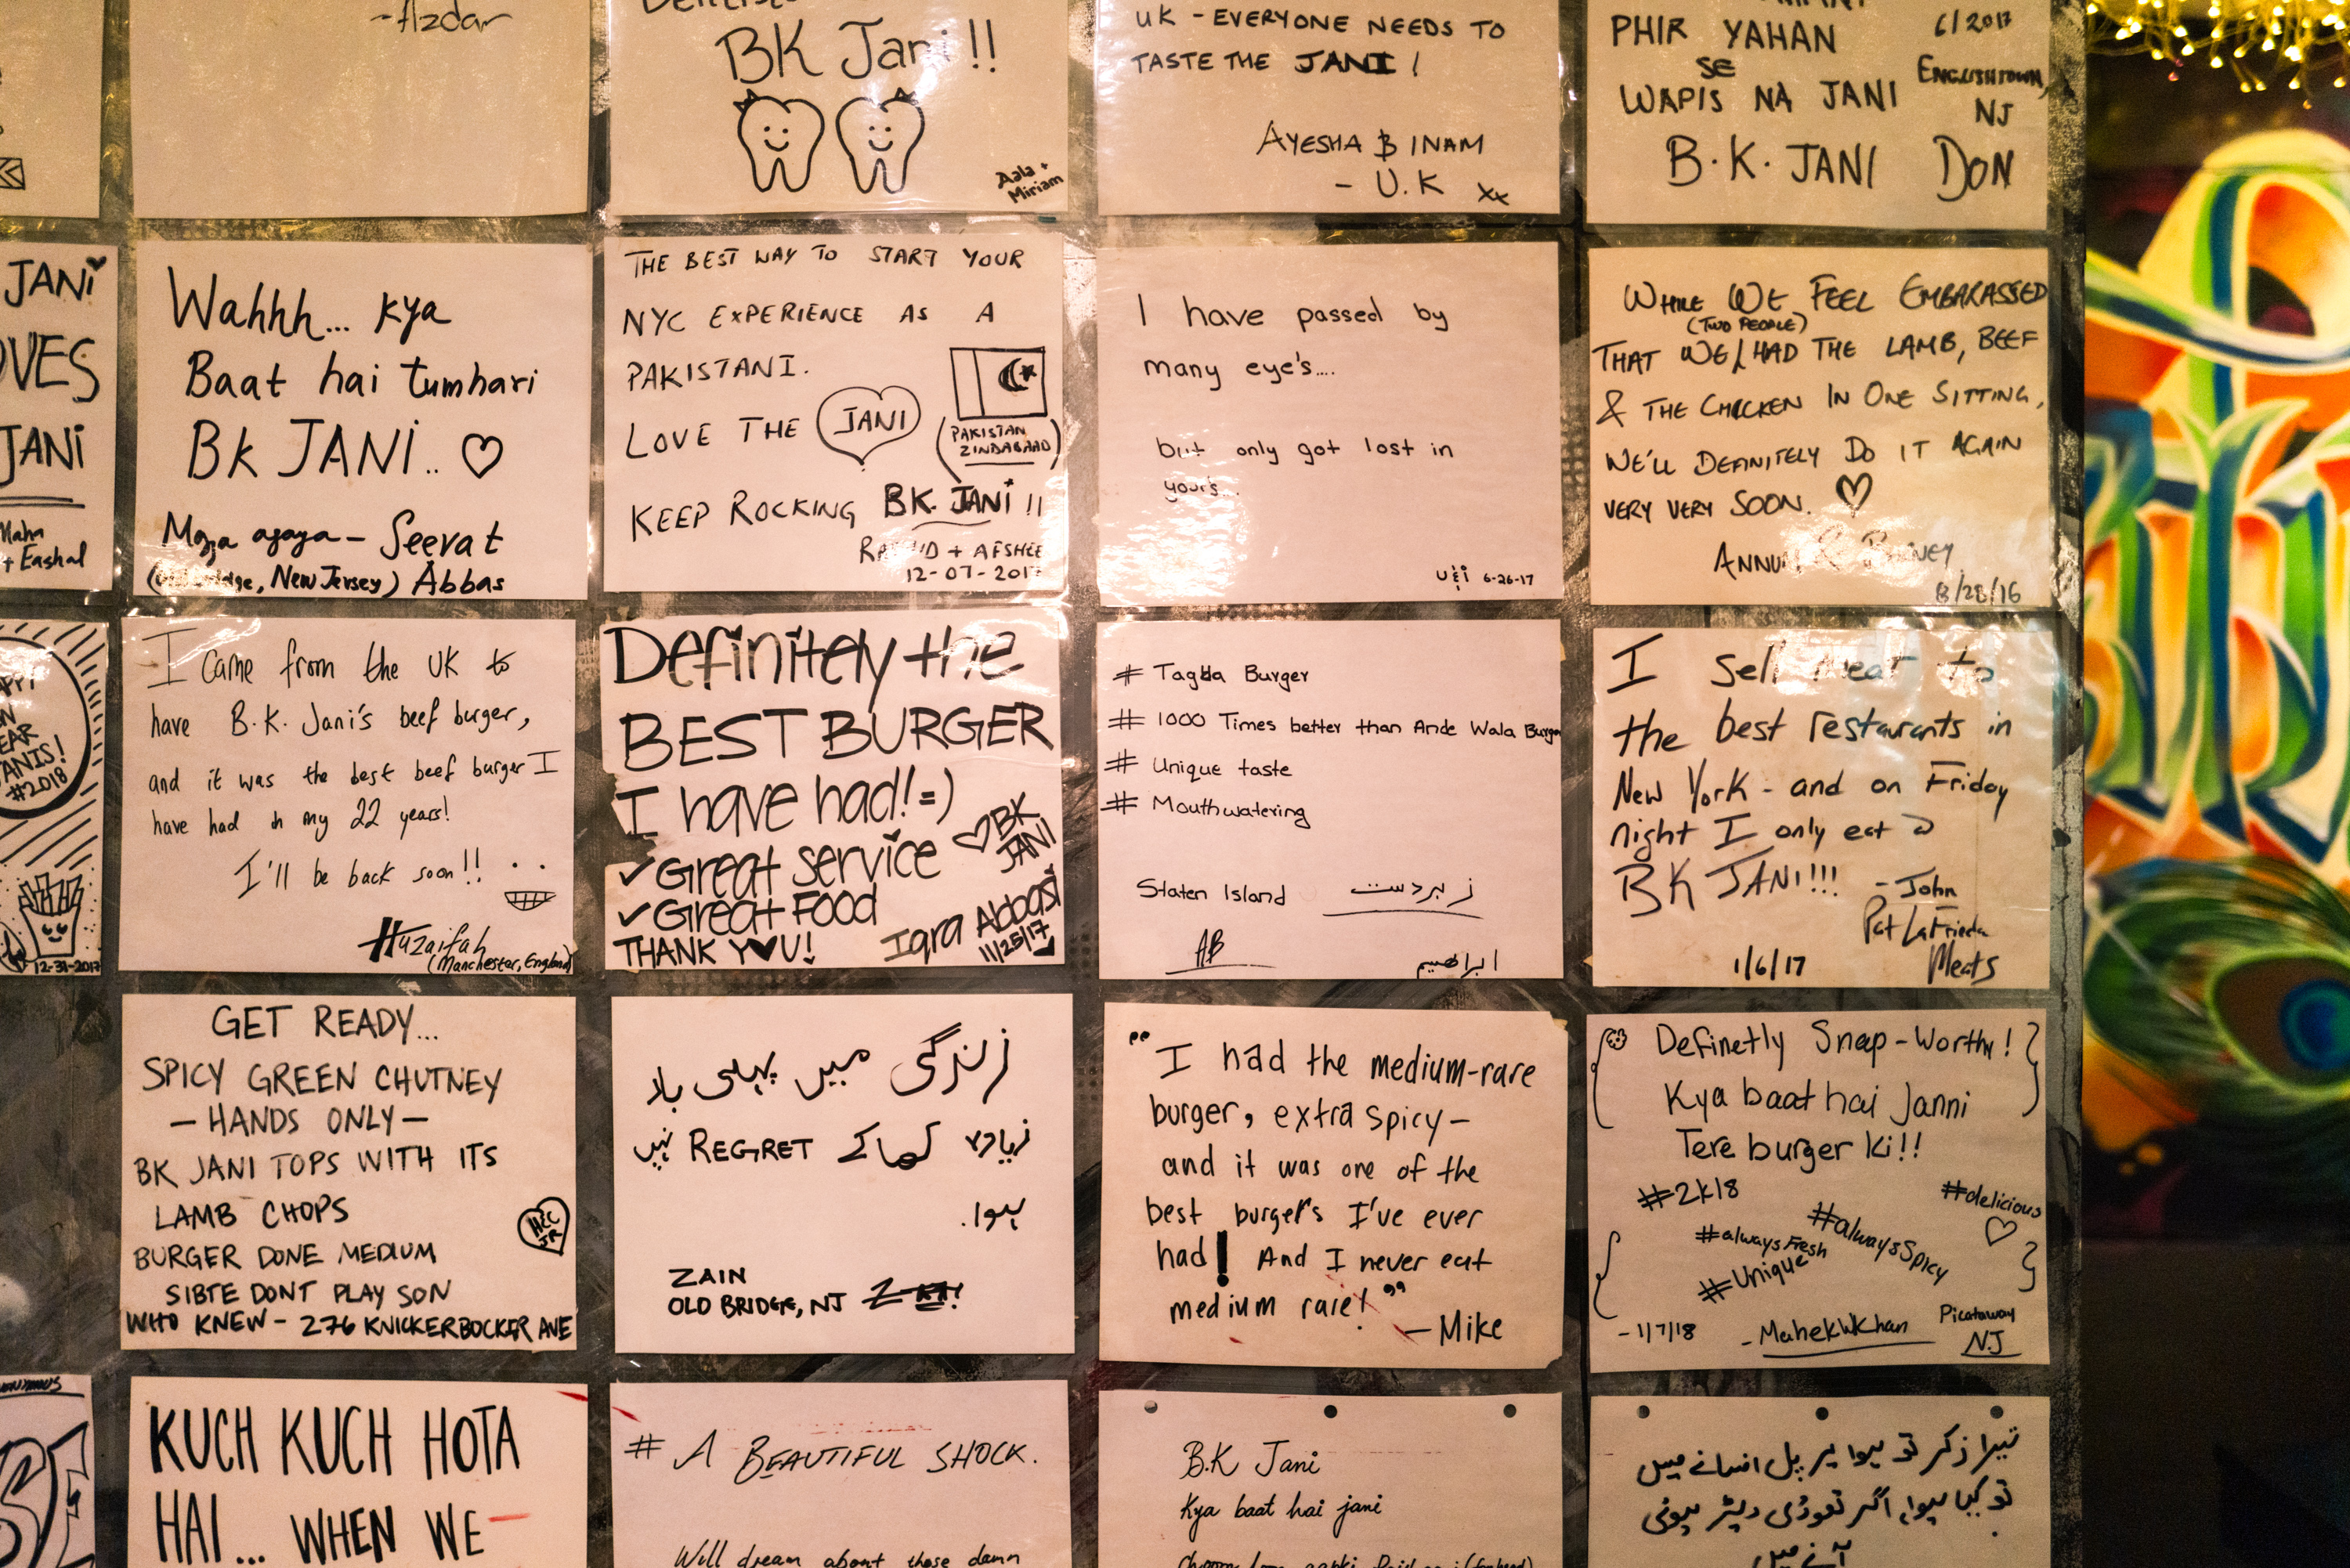 -Azdar
BK Jani!!
Aala +
Miriam
UK - EVERYONE NEEDS TO
TASTE THE JANI!
AYESHA & INAM
- U.K xx
PHIR YAHAN
SE
WAPIS NA JANI
B.K. JANI
6/2017
ENGLISHTOWN,
NJ
DON
JANI
JANI
+ Eashal
Wahhh... kya
Baat hai tumhari
Bk JANI.. ♡
Maza agaya - Seerat
New Jersey) Abbas
THE BEST WAY TO START YOUR
NYC EXPERIENCE AS A
PAKISTANI.
LOVE THE JANI
(PAKISTAN
ZINDABAAD)
KEEP ROCKING BK. JANI !!
+ AFSHEE
12-07-2017
I have passed by
many eye's....
but only got lost in
yours...
U & i 6-26-17
WHILE WE FEEL EMBARASSED
(TWO PEOPLE)
THAT WE/HAD THE LAMB, BEEF
& THE CHICKEN IN ONE SITTING,
WE'LL DEFINITELY DO IT AGAIN
VERY VERY SOON. ♡
8/28/16
JANIS!
#2018
12-31-2017
I came from the UK to
have B.K. Jani's beef burger,
and it was the best beef burger I
have had in my 22 years!
I'll be back soon!!
Huzaifah
(Manchester, England)
Definitely the
BEST BURGER
I have had! =)
♡ BK
JANI
✓Great service
✓Great FOOD
THANK Y♥U!
Iqra Abbasi
11/25/17
# Tagda Burger
# 1000 Times better than Ande Wala Burger
# Unique taste
# Mouthwatering
Staten Island زبردست
AB ابراهیم
I sell meat to
the best restaurants in
New York - and on Friday
night I only eat @
BK JANI!!!
- John
Pat LaFrieda
Meats
1/6/17
GET READY...
SPICY GREEN CHUTNEY
- HANDS ONLY -
BK JANI TOPS WITH ITS
LAMB CHOPS
BURGER DONE MEDIUM
SIBTE DONT PLAY SON
WHO KNEW - 276 KNICKERBOCKER AVE
زندگی میں پہلی بار
زیادہ کھا کے REGRET نہیں
ہوا.
ZAIN
OLD BRIDGE, NJ
"I had the medium-rare
burger, extra spicy -
and it was one of the
best burgers I've ever
had! And I never eat
medium rare!"
- Mike
Definetly Snap-Worthy!
Kya baat hai Janni
Tere burger ki!!
#2k18
#delicious
♡
#alwaysFresh
#alwaysSpicy
#Unique
- 1/7/18
- MahekWKhan
Picataway
NJ
KUCH KUCH HOTA
HAI... WHEN WE
# A BEAUTIFUL SHOCK.
Will dream about those damn
B.K Jani
Kya baat hai jani
تیرا ذکر تو ہوا ہر پل افسانے میں
تو کیا ہوا، اگر تھوڑی دیر ہوئی
آنے میں